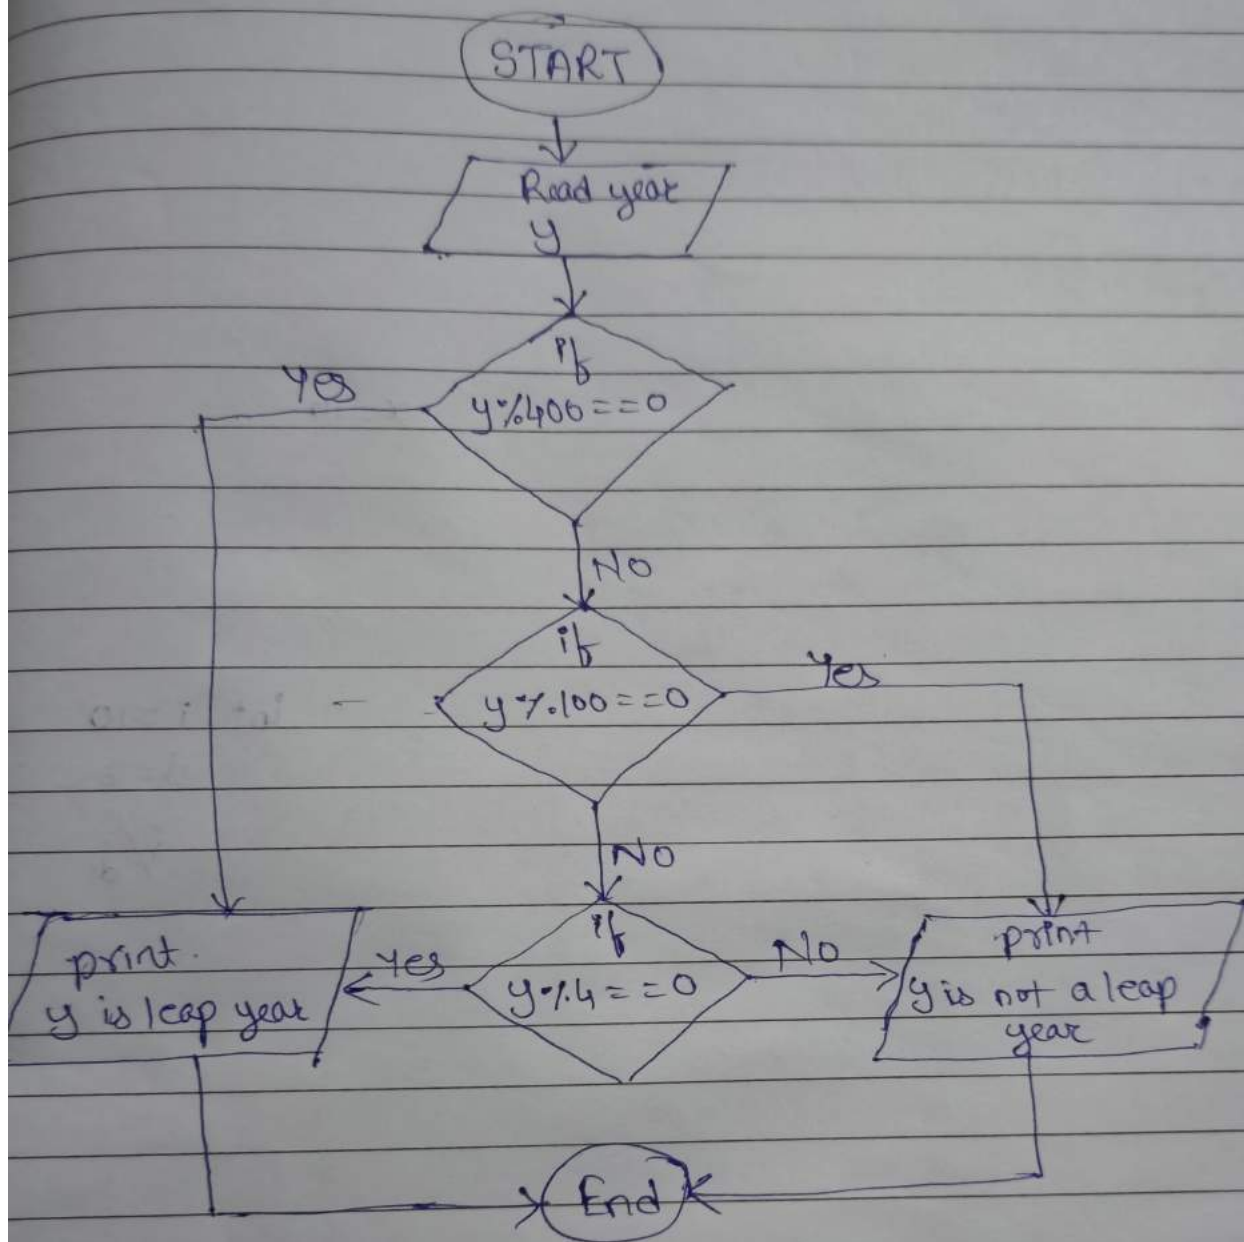 START
Read year
y
if
y%400==0
Yes
NO
if
y%100==0
Yes
NO
if
y%4==0
Yes
NO
print.
y is leap year
print
y is not a leap
year
End